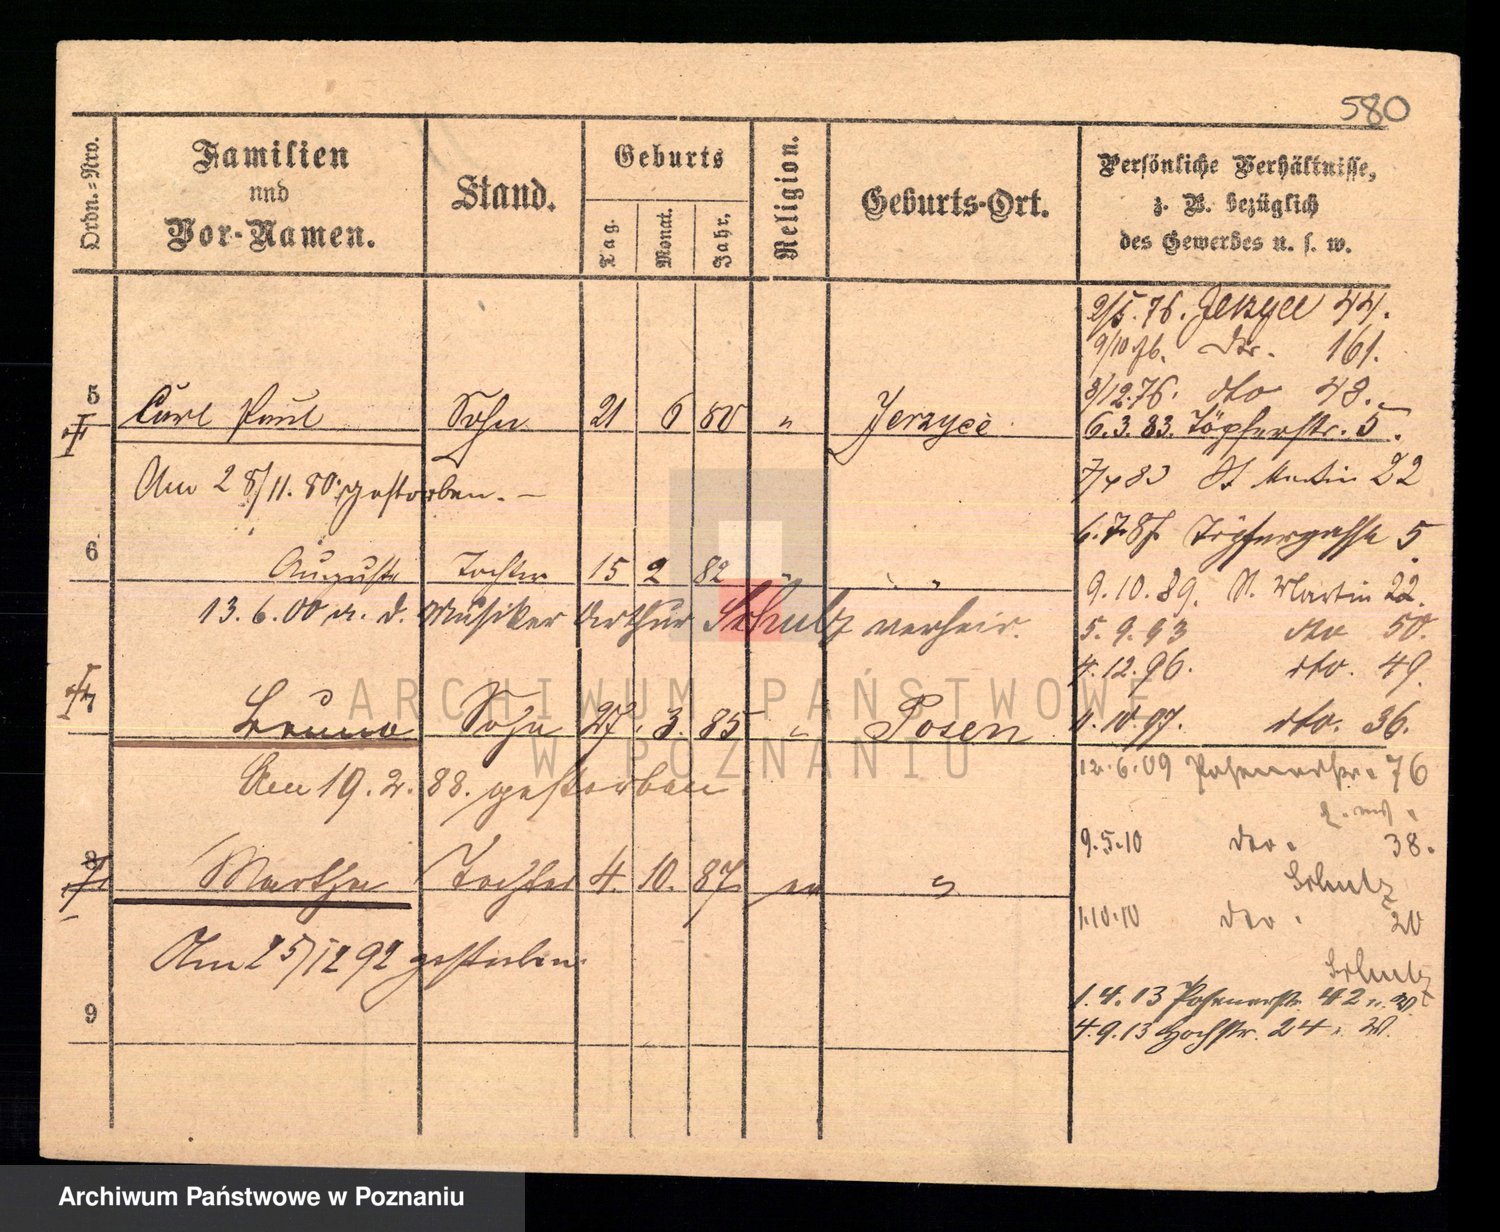 580
Ordn.-Nro.
Familien
und
Vor-Namen.
Stand.
Geburts
Tag.
Monat.
Jahr.
Religion.
Geburts-Ort.
Persönliche Verhältnisse,
z. B. bezüglich
des Gewerbes u. s. w.
2/5. 76. Jerzyce 44.
9/10 76. dto. 161.
8/12. 76. dto 48.
5 Carl Paul Sohn 21 6 80 " Jerzyce
6. 3. 83. Töpferstr. 5.
Am 28/11. 80. gestorben. –
83 St Martin 22
6. 7. 87. Töpfergasse 5.
6 Auguste Tochter 15 2 82 " "
9. 10. 89. St. Martin 22.
13. 6. 00 m. d. Musiker Arthur Schulz verheir.
5. 9. 93 dto 50.
4. 12. 96. dto. 49.
7 Bruno Sohn 27. 3. 85 " Posen
10. 97. dto. 36.
Am 19. 2. 88. gestorben.
12. 6. 09 Posenerstr. 76
9. 5. 10 dto. 38.
8 Martha Tochter 4. 10. 87 "
Schulz
1. 10. 10 dto. 20
Am 25/12 92 gestorben.
Schulz
1. 4. 13 Posenerstr. 42
9
4. 9. 13 Hochstr. 24
ARCHIWUM PAŃSTWOWE
W POZNANIU
Archiwum Państwowe w Poznaniu